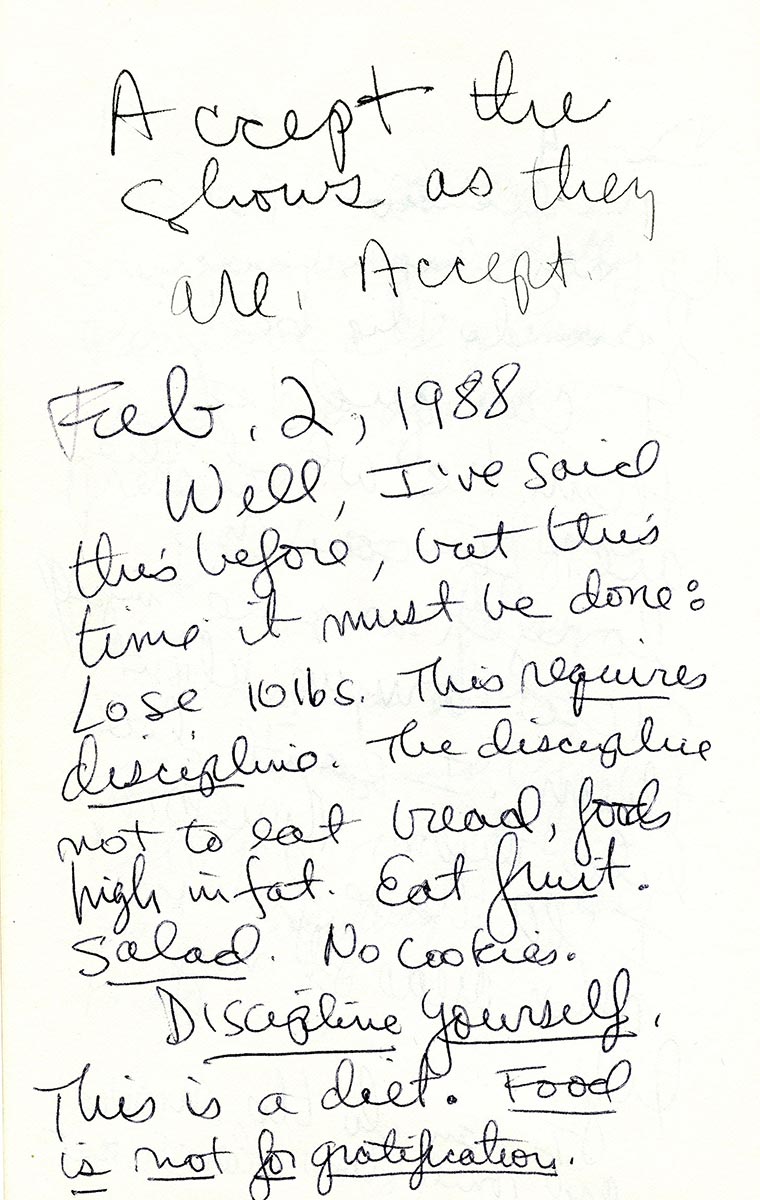 Accept the
shows as they
are. Accept.
Feb. 2, 1988
Well, I've said
this before, but this
time it must be done:
Lose 10 lbs. This requires
discipline. The discipline
not to eat bread, foods
high in fat. Eat fruit.
Salad. No cookies.
Discipline yourself.
This is a diet. Food
is not for gratification.